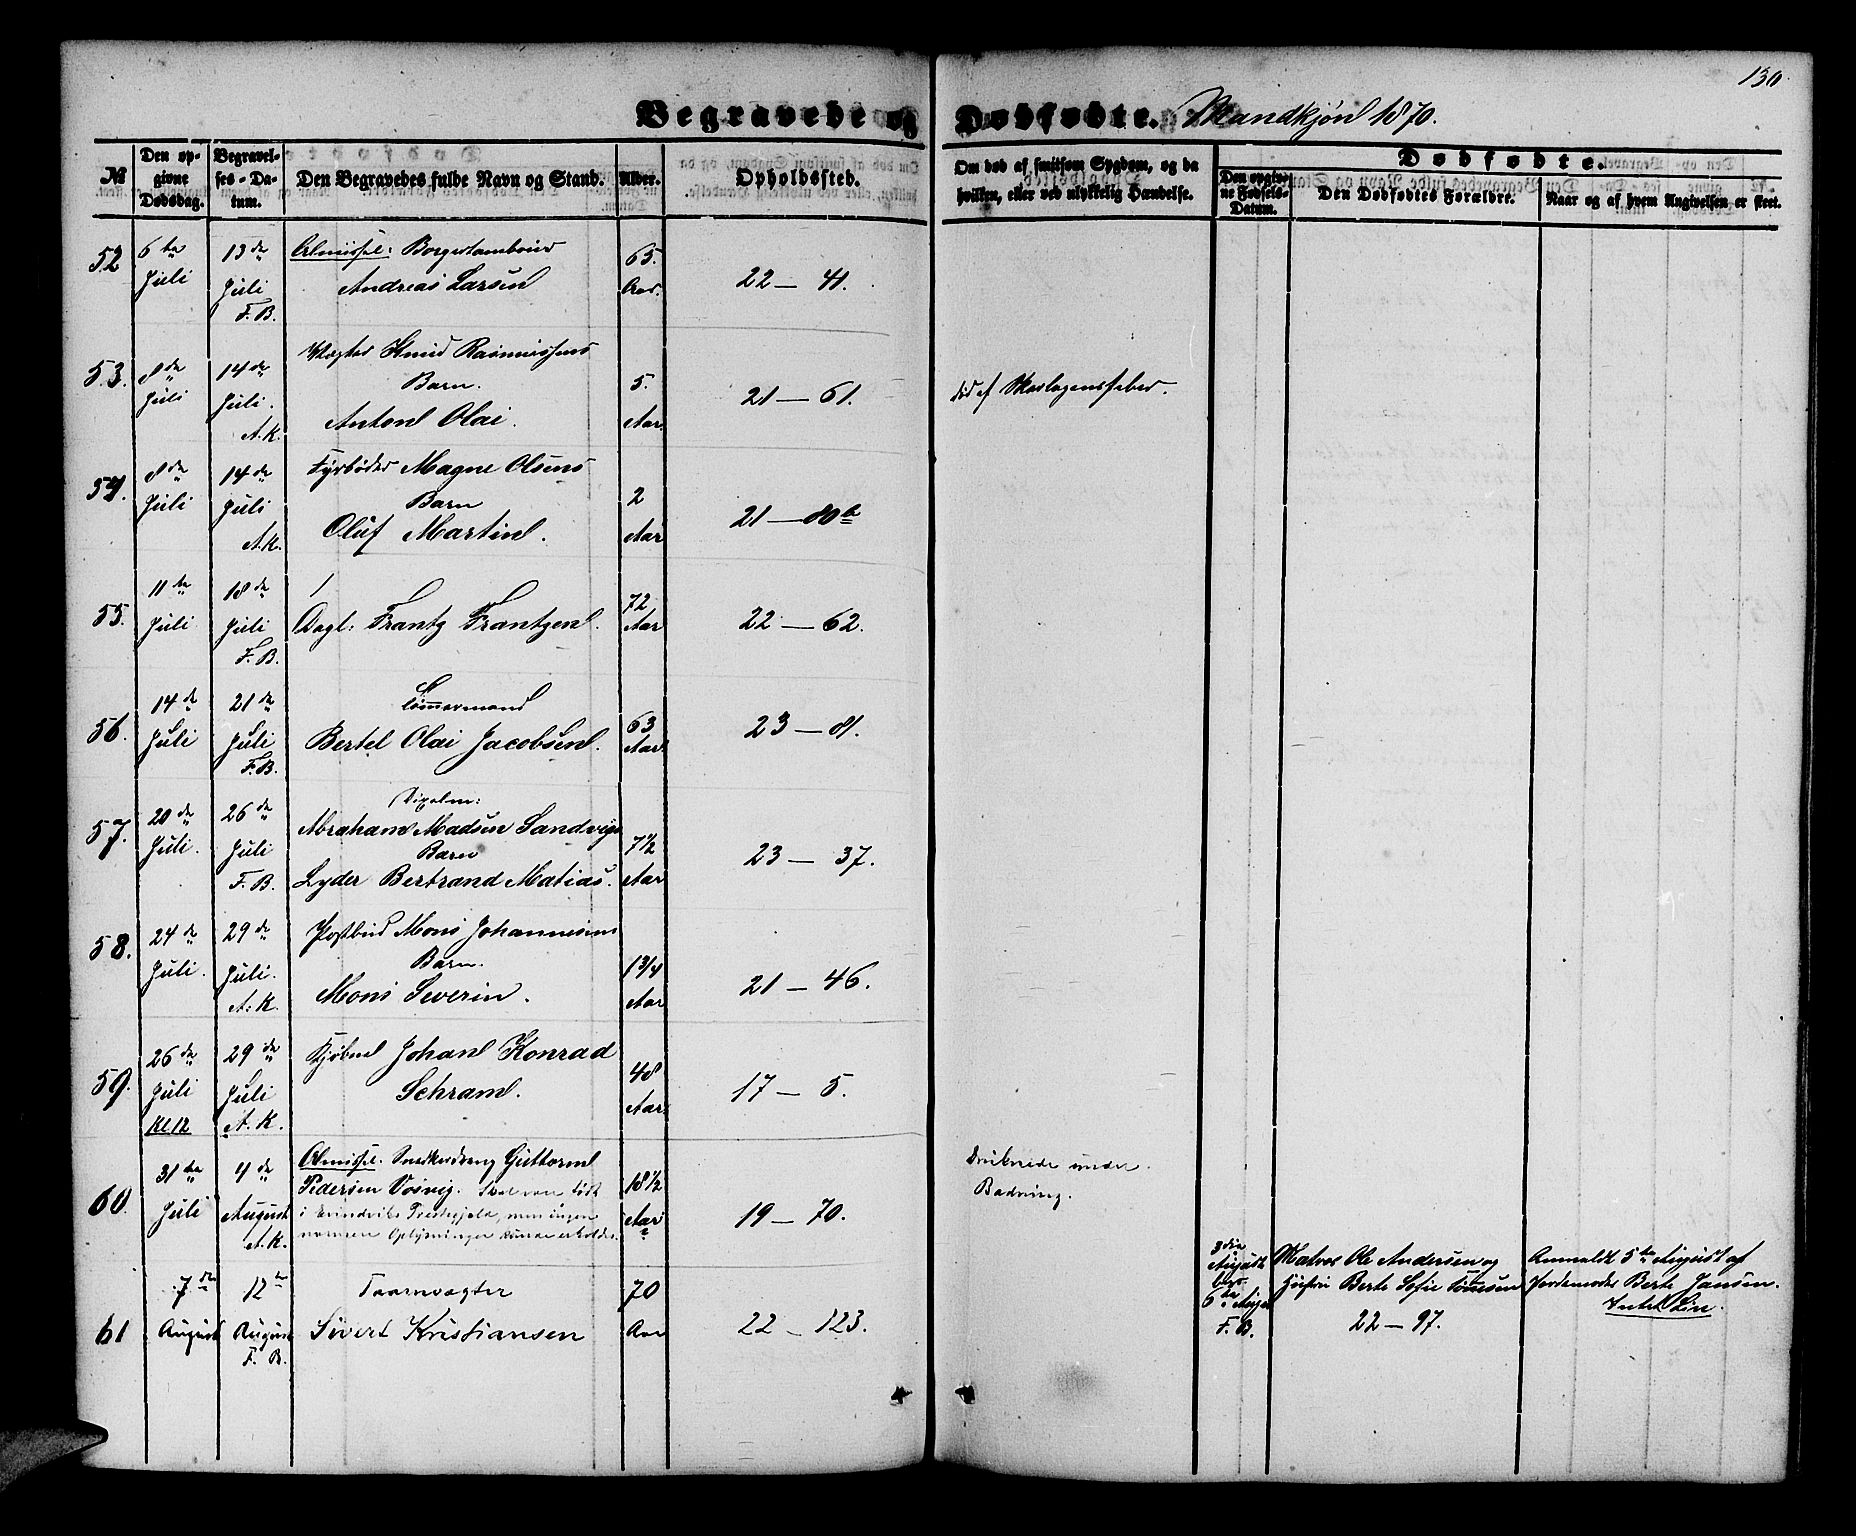 130.
Begravede og Dødfødte. Mandkjøn 1870.
№ Den opgivne Dødsdag. Begravelses-Datum. Den Begravedes fulde Navn og Stand. Alder. Opholdssted. Om død af smitsom Sygdom, og da hvilken, eller ved ulykkelig Hændelse. Dødfødte.
Den opgivne Fødsels-Datum. Den Dødfødtes Forældre. Naar og af hvem Angivelsen er skeet.
52 6te Juli 13de Juli F.B. Almissel: Borgertambour
Andreas Larsen 65. Aar. 22 — 41.
53. 8de Juli 14de Juli. A.K. Vægter Knud Rasmussens
Barn.
Anton Olai. 5. Aar 21 — 61. død af Skarlagensfeber.
54. 8de Juli 14de Juli A.K. Fyrbøder Magne Olsens
Barn
Oluf Martin. 2 Aar 21 — 80b
55. 11te Juli 18de Juli F.B.
Dagl: Frantz Frantzen. 72 Aar 22 — 62.
56. 14de Juli 21de Juli F.B. Tømmermand
Bertel Olai Jacobsen. 63 Aar. 23 — 81.
57. 20de Juli. 26de Juli F.B.
Abraham Madsen Sandvigs
Barn
Lyder Bertrand Matias. 7½ Aar 23 — 37.
58. 24de Juli. 29de Juli. A.K. Postbud Mons Johannesens
Barn.
Mons Severin. 1¾ Aar 21 — 46.
59. 26de Juli Kl. 12 29de Juli A.K. Kjøbm Johan Konrad
Schram. 48 Aar 17 — 5.
60. 31te Juli 4de August A.K. Almissel. Snedkerdreng Guttorm
Pedersen Vosvig. Skal være født
i Evindvibs Præstegjeld, men ingen
nærmere Oplysninger kunde erholdes. 18½ Aar 19 — 70. Druknede under
Badning.
3die August begr. 6te Aug. F.B. Matros Ole Andersen og
Hustru Berte Sofie Tønnesen
22 — 97. Anmeldt 5te August af
Jordemoder Berte Jansen.
61 7de August 12te August F.B. Taarnvægter
Sivert Kristiansen 70 Aar 22 — 123.